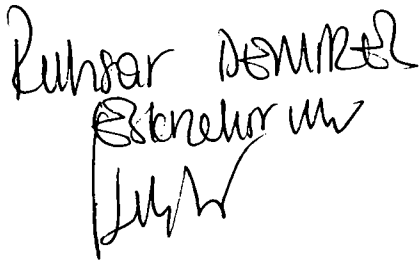 Ruhsar DEMİREL
Eskişehir MV